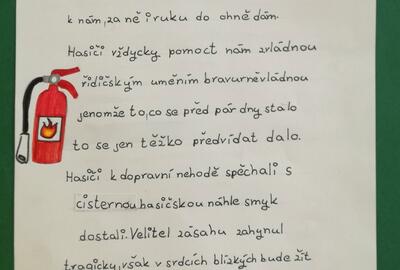 k nám, za ně i ruku do ohně dám.
Hasiči vždycky pomoct nám zvládnou
řidičským uměním bravurně vládnou
jenomže to, co se před pár dny stalo
to se jen těžko předvídat dalo.
Hasiči k dopravní nehodě spěchali s
cisternou hasičskou náhle smyk
dostali. Velitel zásahu zahynul
tragicky, však v srdcích blízkých bude žít